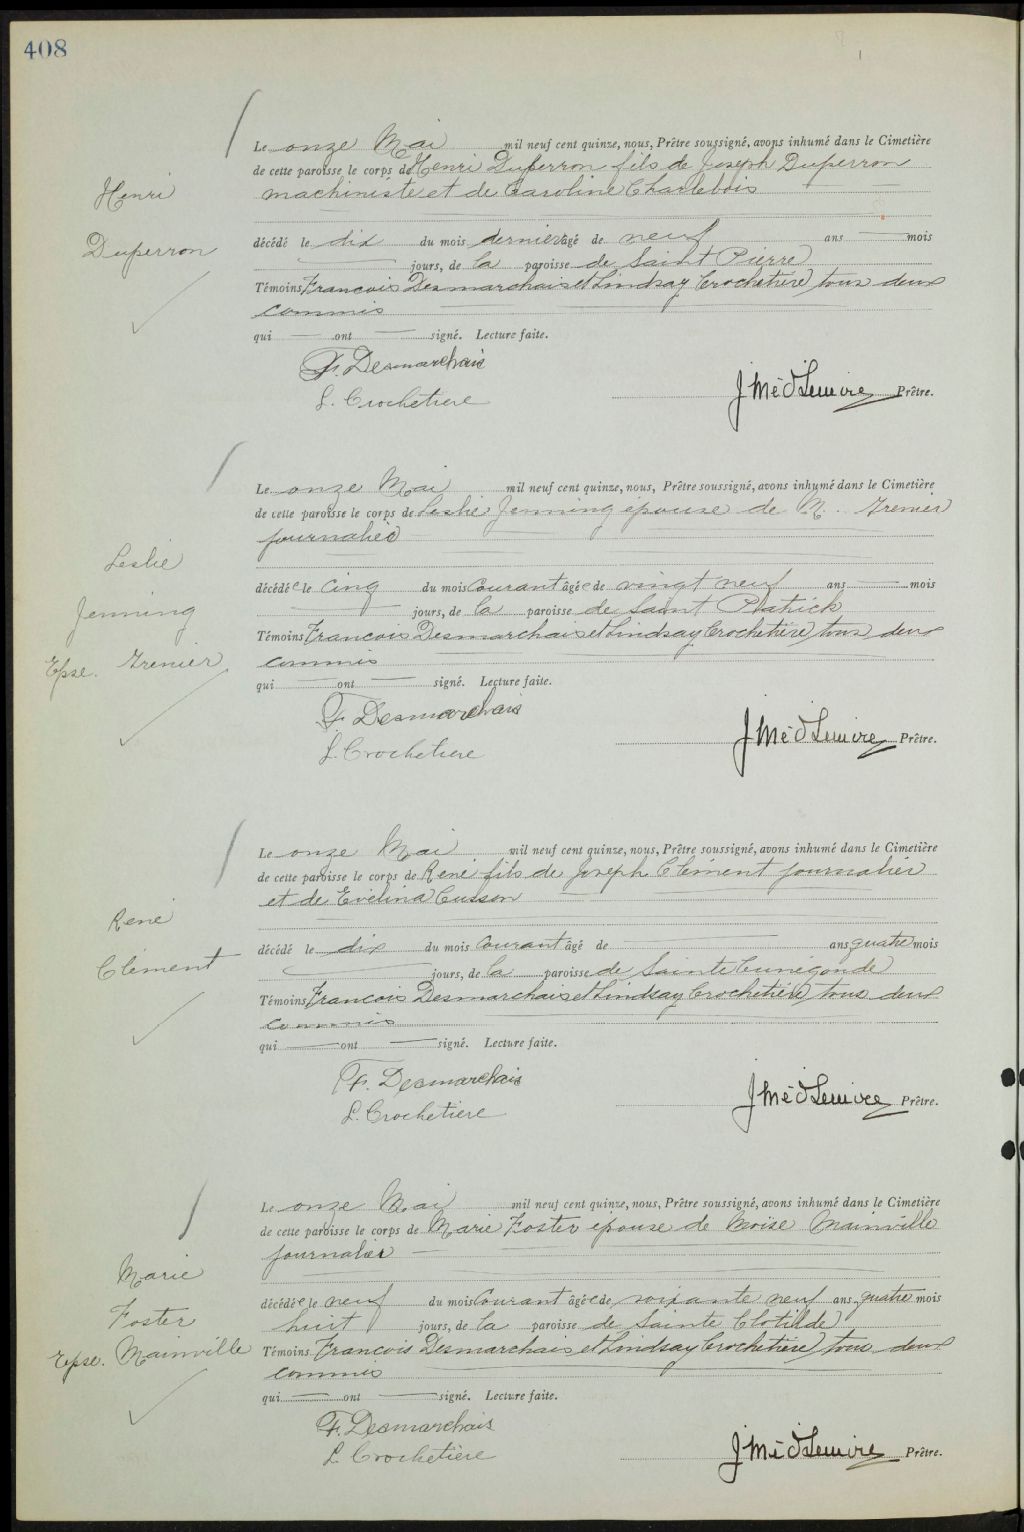 408
Le onze Mai mil neuf cent quinze, nous, Prêtre soussigné, avons inhumé dans le Cimetière
de cette paroisse le corps de Henri Duperron fils de Joseph Duperron
machiniste et de Caroline Charlebois
Henri
Duperron
décédé le dix du mois dernier âgé de neuf ans mois
jours, de la paroisse de Saint Pierre
Témoins Francois Desmarchais et Lindsay Crochetière tous deux
commis
qui ont signé. Lecture faite.
F. Desmarchais
L. Crochetiere
J Méd Lemire Prêtre.
Le onze Mai mil neuf cent quinze, nous, Prêtre soussigné, avons inhumé dans le Cimetière
de cette paroisse le corps de Leslie Jenning épouse de M. Grenier
journalier
Leslie
Jenning
Epse. Grenier
décédée le cinq du mois courant âgée de vingt neuf ans mois
jours, de la paroisse de Saint Patrick
Témoins Francois Desmarchais et Lindsay Crochetière tous deux
commis
qui ont signé. Lecture faite.
F. Desmarchais
L. Crochetiere
J Méd Lemire Prêtre.
Le onze Mai mil neuf cent quinze, nous, Prêtre soussigné, avons inhumé dans le Cimetière
de cette paroisse le corps de René fils de Joseph Clément journalier
et de Evélina Cusson
René
Clément
décédé le dix du mois courant âgé de ans quatre mois
jours, de la paroisse de Sainte Cunégonde
Témoins Francois Desmarchais et Lindsay Crochetière tous deux
commis
qui ont signé. Lecture faite.
F. Desmarchais
L. Crochetiere
J Méd Lemire Prêtre.
Le onze Mai mil neuf cent quinze, nous, Prêtre soussigné, avons inhumé dans le Cimetière
de cette paroisse le corps de Marie Foster épouse de Moïse Mainville
journalier
Marie
Foster
Epse. Mainville
décédée le neuf du mois courant âgée de soixante neuf ans quatre mois
huit jours, de la paroisse de Sainte Clotilde
Témoins Francois Desmarchais et Lindsay Crochetière tous deux
commis
qui ont signé. Lecture faite.
F. Desmarchais
L. Crochetiere
J Méd Lemire Prêtre.